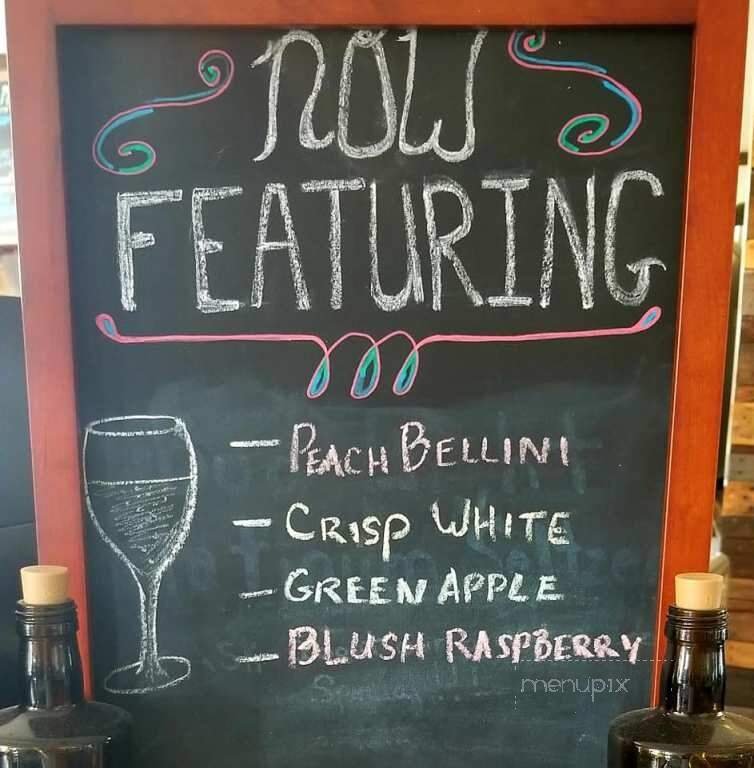 NOW
FEATURING
— PEACH BELLINI
— CRISP WHITE
— GREEN APPLE
— BLUSH RASPBERRY
menupix